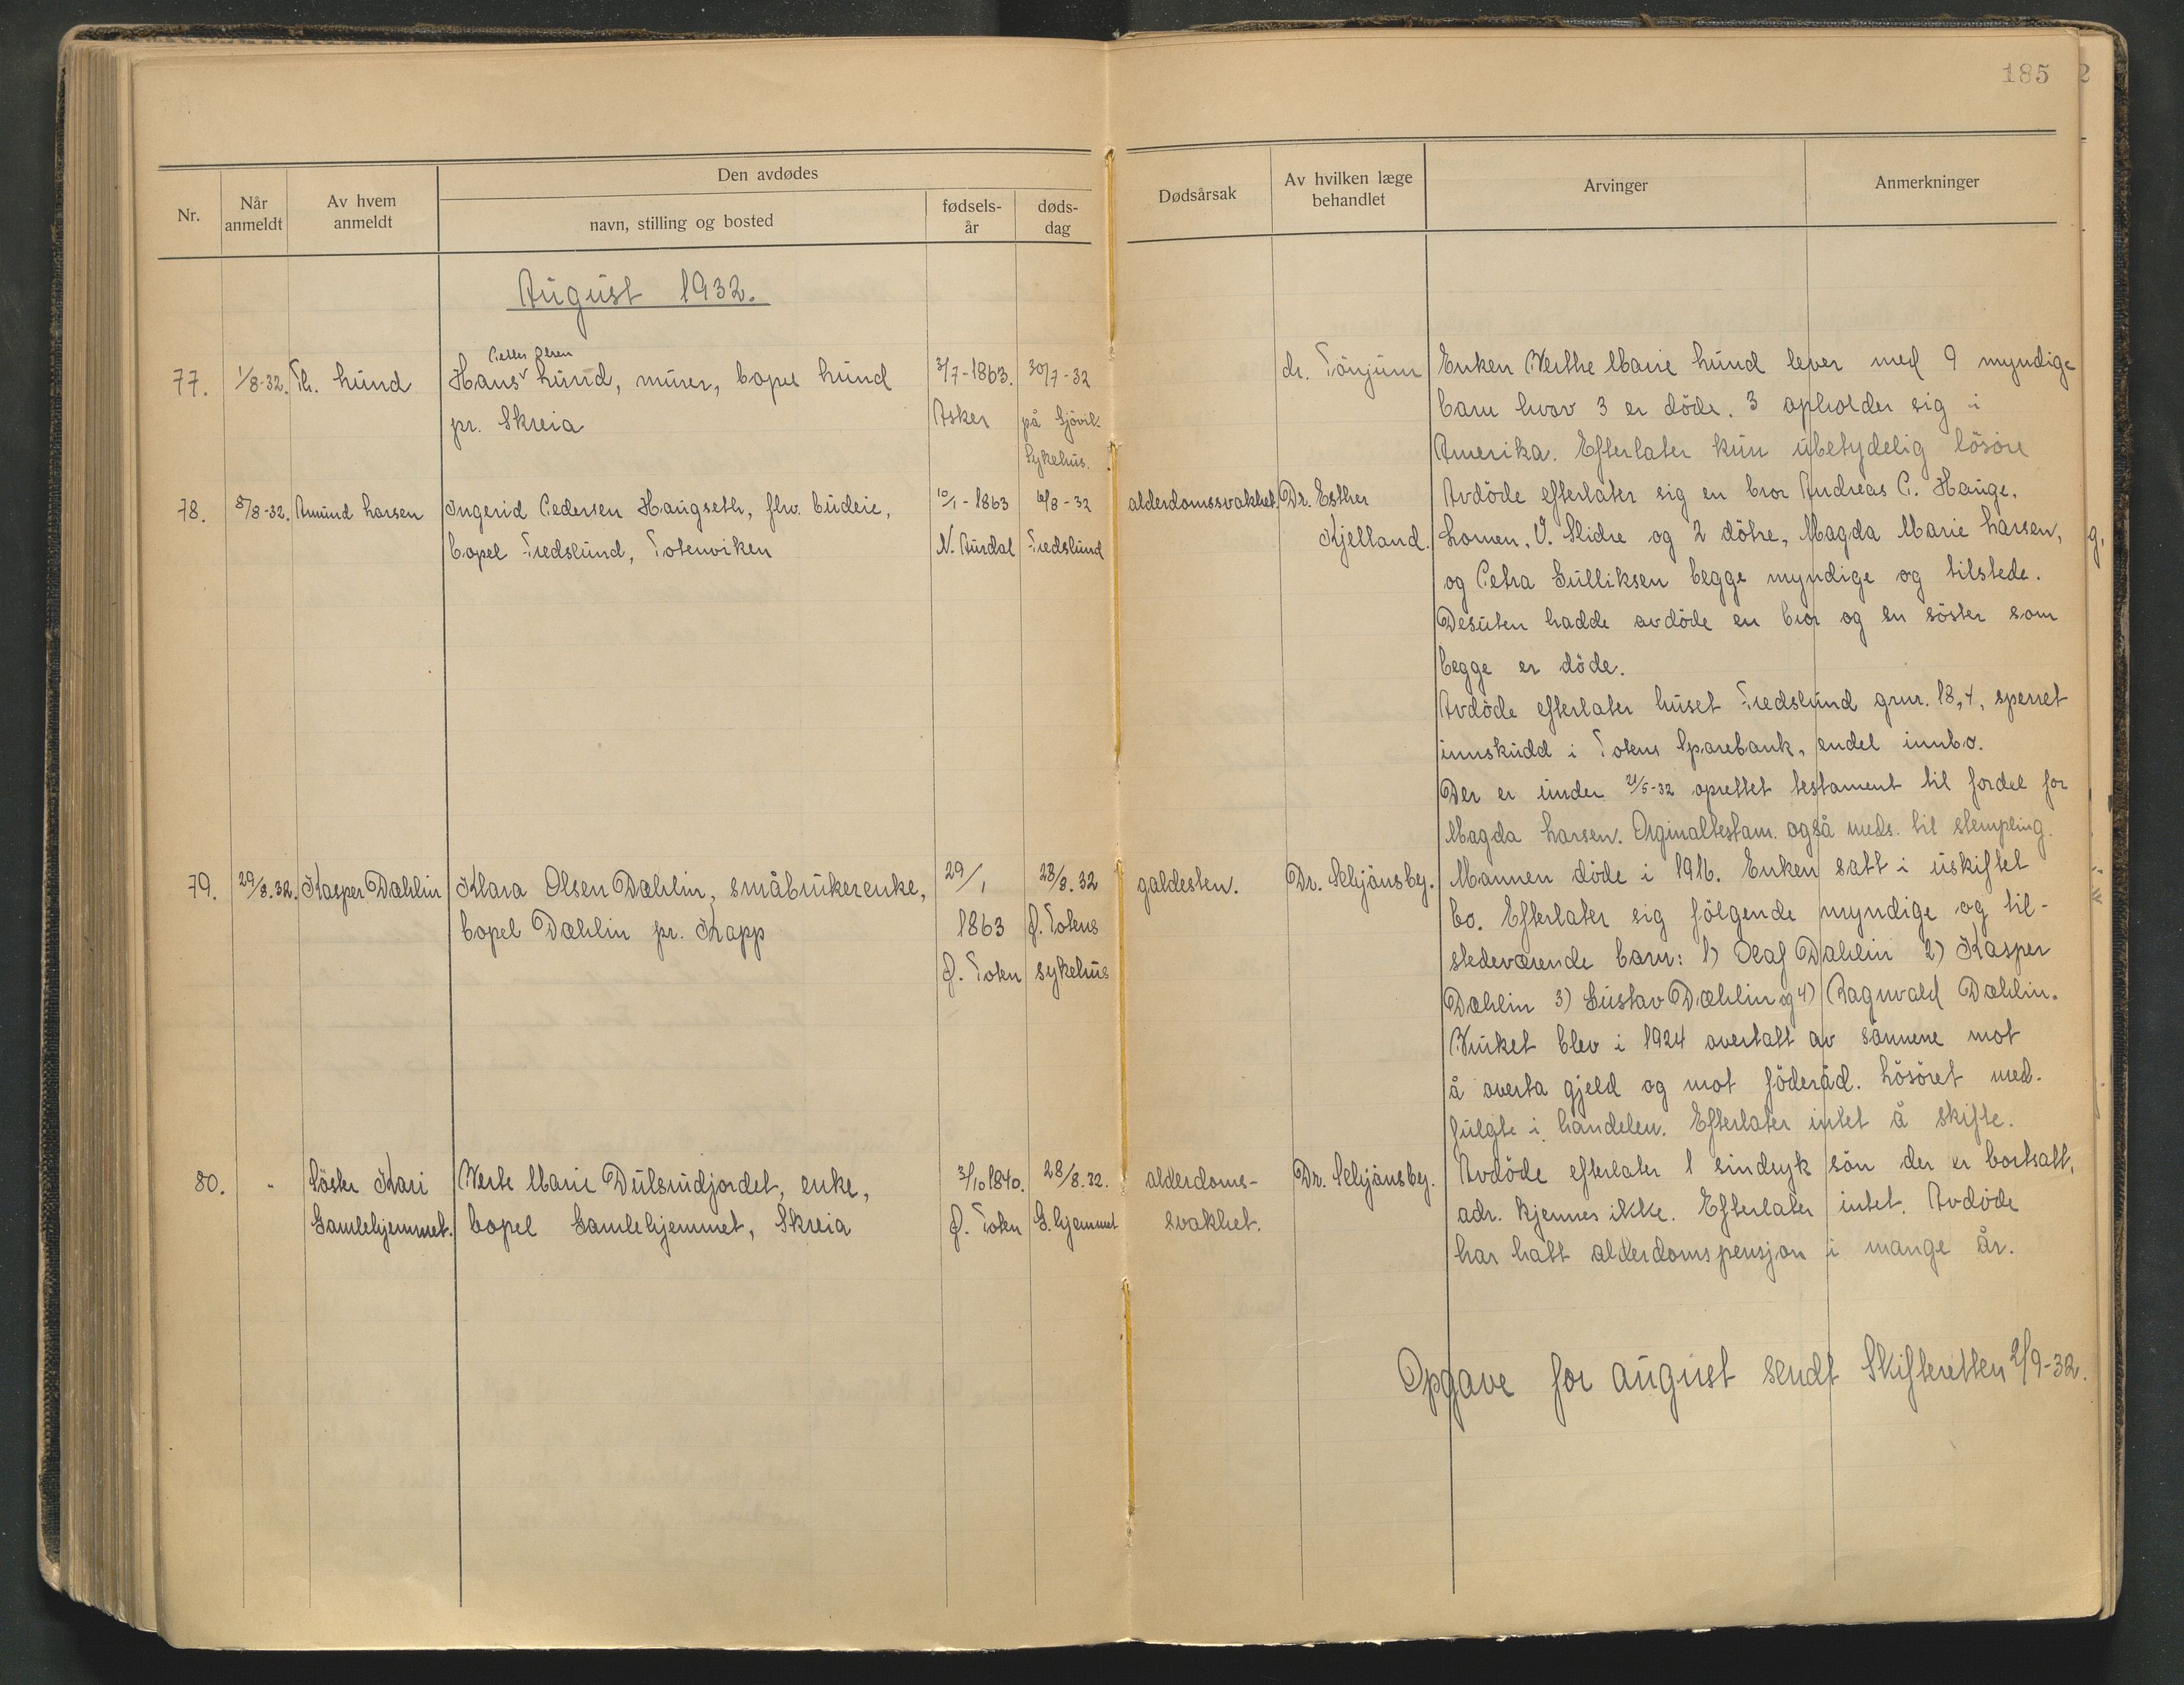 185 2
Den avdødes
Nr.
Når anmeldt
Av hvem anmeldt
navn, stilling og bosted
fødsels-år
døds-dag
Dødsårsak
Av hvilken læge behandlet
Arvinger
Anmerkninger
August 1932.
77. 1/8-32. Th. Lund
Petter Olsen
Hans ᵛ Lund, murer, bopel Lund
pr. Skreia
3/7-1863.
Asker
30/7-32
på Gjövik
Sykehus.
dr. Tönjum
Enken Berthe Marie Lund lever med 9 myndige
barn hvav 3 er döde. 3 opholder sig i
Amerika. Efterlater kun ubetydelig lösöre
78. 8/8-32. Amund Larsen
Ingerid Pedersen Haugseth, fhv. budeie,
bopel Fredslund, Totenviken
10/1-1863
N. Aurdal
6/8-32
Fredslund
alderdomssvakhet.
Dr. Esther
Kjelland.
Avdöde efterlater sig en bror Andreas P. Hauge,
Lomen, V. Slidre og 2 dötre, Magda Marie Larsen,
og Petra Gulliksen begge myndige og tilstede.
Desuten hadde avdöde en bror og en söster som
begge er döde.
Avdöde efterlater huset Fredslund grnr. 18,4, sperret
innskudd i Totens Sparebank, endel innbo.
Der er under 21/5-32 oprettet testament til fordel for
Magda Larsen. Orginaltestam. også meds. til stempling.
79. 29/8.32. Kasper Dæhlin
Klara Olsen Dæhlin, småbrukerenke,
bopel Dæhlin pr. Kapp
29/1
1863
Ø. Toten
28/8.32
Ø. Totens
sykehus
galdesten.
Dr. Schjånsby.
Mannen döde i 1916. Enken satt i uskiftet
bo. Efterlater sig fölgende myndige og til-
stedeværende barn: 1) Olaf Dæhlin 2) Kasper
Dæhlin 3) Gustav Dæhlin og 4) Ragnvald Dæhlin.
Bruket blev i 1924 overtatt av sönnene mot
å overta gjeld og mot föderåd. Lösöret med-
fulgte i handelen. Efterlater intet å skifte.
80. " Söster Kari
Gamlehjemmet.
Berte Marie Dulsrudjordet, enke,
bopel Gamlehjemmet, Skreia
3/10 1840.
Ø. Toten
28/8.32.
G.hjemmet
alderdoms-
svakhet.
Dr. Schjånsby.
Avdöde efterlater 1 sindsyk sön der er bortsatt,
adr. kjennes ikke. Efterlater intet. Avdöde
har hatt alderdomspensjon i mange år.
Opgave for august sendt Skifteretten 2/9-32.